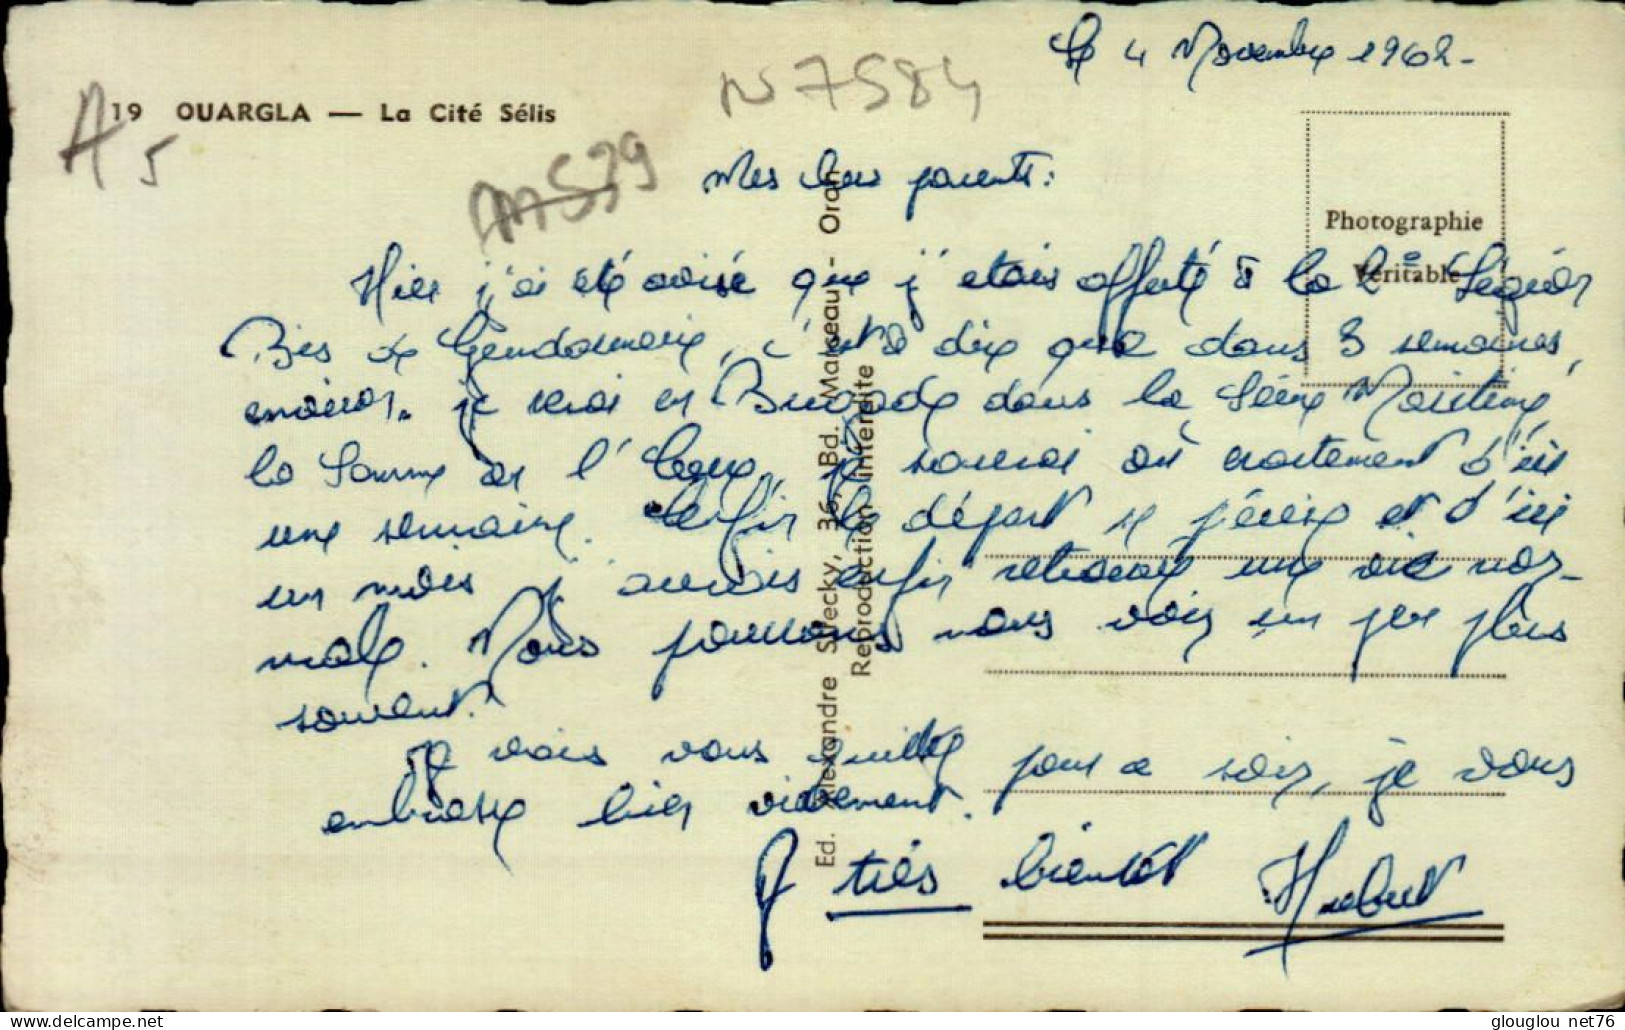 Le 4 Novembre 1962-
N 7584
A 19 OUARGLA — La Cité Sélis
5
Mes chers parents:
Photographie
Véritable
Hier j'ai été avisé que j'étais affecté à la 2e Légion
Bis de Gendarmerie, c'est à dire que dans 3 semaines
environ. je serai en Brigade dans la Seine Maritime
la Somme ou l'Eure, je saurai où exactement d'ici
une semaine. Enfin le départ se précise et d'ici
un mois j'aurais enfin retrouvé une vie nor-
male. Nous pourrons nous voir un peu plus
souvent.
Je vais vous quitter pour ce soir, je vous
embrasse bien vivement.
A très bientôt Hubert
Ed. Alexandre Sirecky, 36, Bd. Marceau - Oran
Reproduction interdite
glouglou_net76